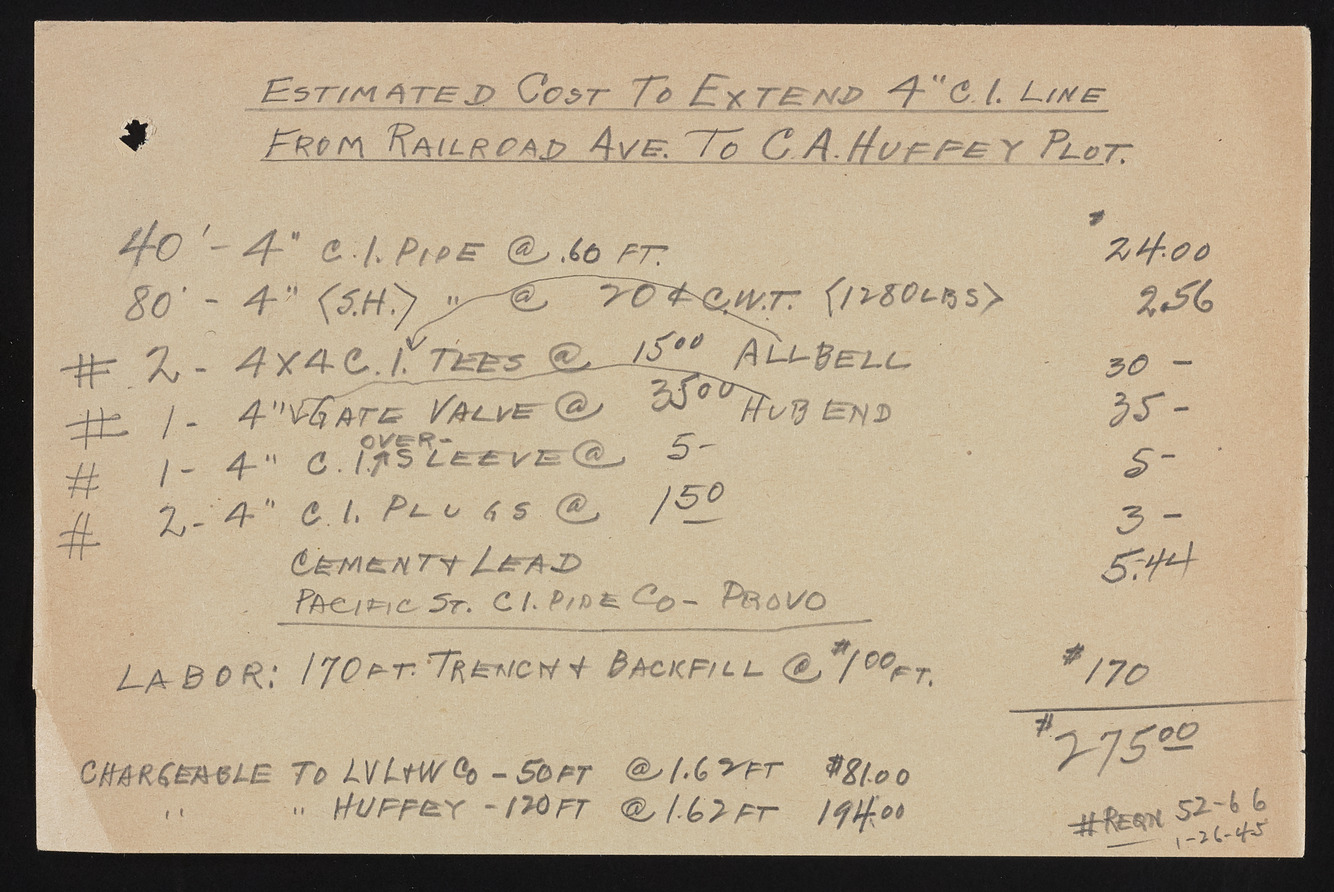 ESTIMATED COST TO EXTEND 4" C.I. LINE
FROM RAILROAD AVE. TO C.A. HUFFEY PLOT.
40' - 4" C.I. PIPE @ .60 FT. $24.00
80' - 4" (S.H.) " @ 20¢ C.W.T. (1280 LBS) 2.56
# 2 - 4X4 C.I. TEES @ 1500 ALL BELL 30 -
# 1 - 4" GATE VALVE @ 3500 HUB END 35 -
# 1 - 4" C.I. OVER-SLEEVE @ 5- 5 -
# 2 - 4" C.I. PLUGS @ 150 3 -
CEMENT & LEAD 5.44
PACIFIC ST. C.I. PIPE CO - PROVO
LABOR: 170 FT. TRENCH & BACKFILL @ $1.00 FT. $170
$27500
CHARGEABLE TO LVL&W CO - 50 FT @ 1.62 FT $81.00
" " HUFFEY - 120 FT @ 1.62 FT 194.00
# REQN 52-66
1-26-45